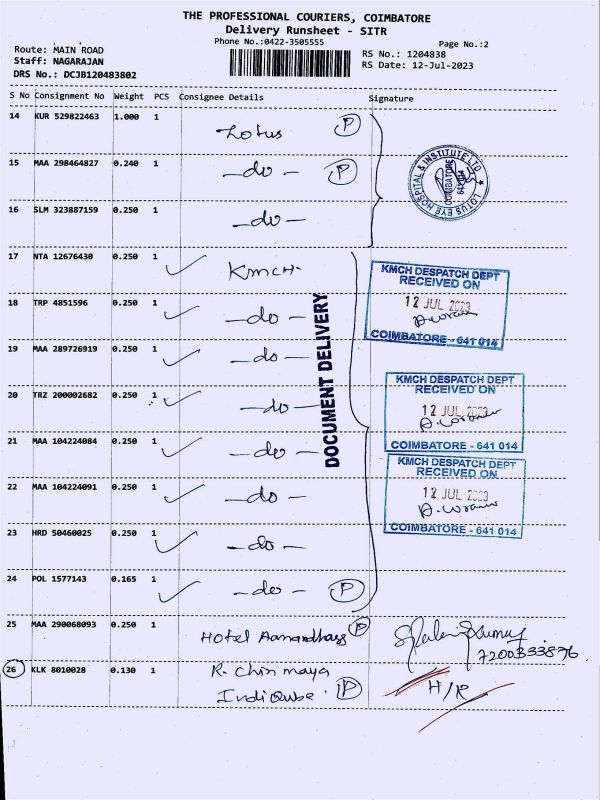 THE PROFESSIONAL COURIERS, COIMBATORE
Delivery Runsheet - SITR
Phone No.:0422-3505555
Page No.:2
Route: MAIN ROAD
RS No.: 1204838
Staff: NAGARAJAN
RS Date: 12-Jul-2023
DRS No.: DCJB120483802
S No Consignment No Weight PCS Consignee Details Signature
14 KUR 529822463 1.000 1 Lotus P
15 MAA 298464827 0.240 1 -do- P
LOTUS EYE HOSPITAL & INSTITUTE LTD
COIMBATORE
641 014
16 SLM 323887159 0.250 1 -do-
17 NTA 12676430 0.250 1 KMCH.
KMCH DESPATCH DEPT
RECEIVED ON
12 JUL 2023
COIMBATORE - 641 014
18 TRP 4851596 0.250 1 -do-
DOCUMENT DELIVERY
19 MAA 289726919 0.250 1 -do-
20 TRZ 200002682 0.250 1 -do-
KMCH DESPATCH DEPT
RECEIVED ON
12 JUL 2023
COIMBATORE - 641 014
21 MAA 104224084 0.250 1 -do-
22 MAA 104224091 0.250 1 -do-
KMCH DESPATCH DEPT
RECEIVED ON
12 JUL 2023
COIMBATORE - 641 014
23 HRD 50460025 0.250 1 -do-
24 POL 1577143 0.165 1 -do- P
25 MAA 290068093 0.250 1 Hotel P
7200333876
26 KLK 8010028 0.130 1 R. Chinmaya
IndiQube. P
H/R